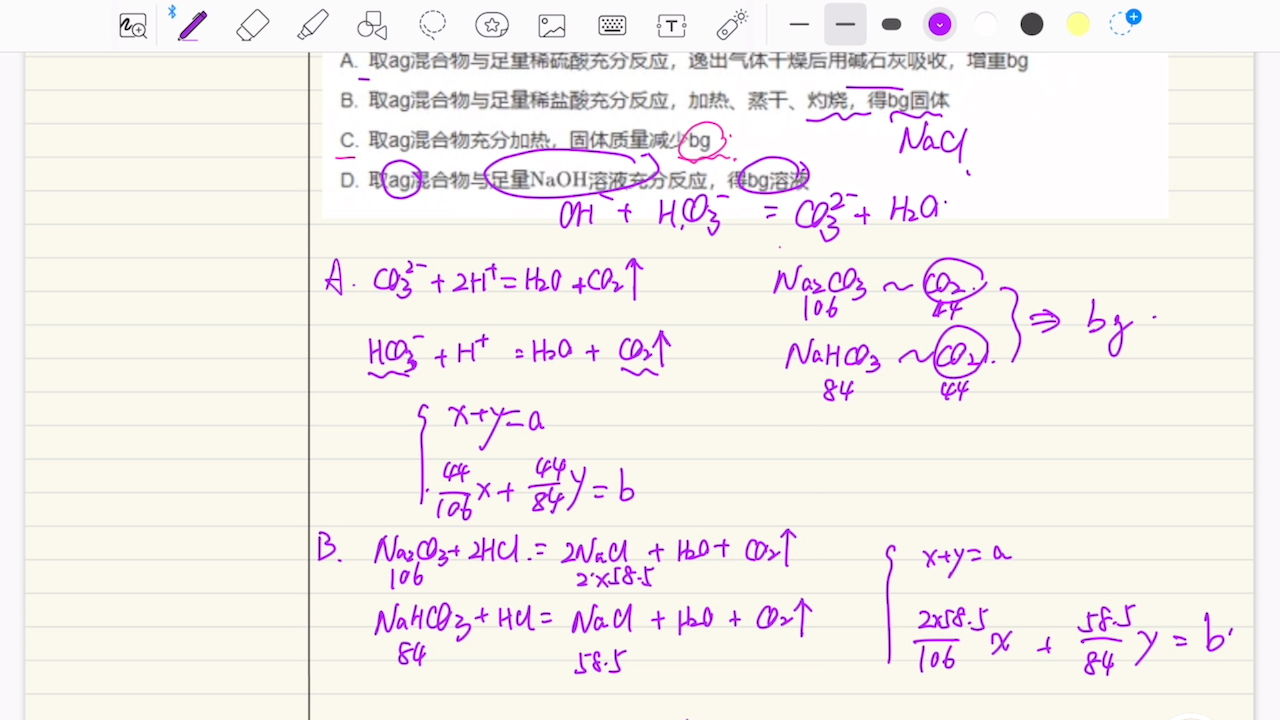 A. 取ag混合物与足量稀硫酸充分反应，逸出气体干燥后用碱石灰吸收，增重bg
B. 取ag混合物与足量稀盐酸充分反应，加热、蒸干、灼烧，得bg固体
NaCl
C. 取ag混合物充分加热，固体质量减少bg
D. 取ag混合物与足量NaOH溶液充分反应，得bg溶液
OH⁻ + HCO₃⁻ = CO₃²⁻ + H₂O
A. CO₃²⁻ + 2H⁺ = H₂O + CO₂↑
Na₂CO₃ ~ CO₂
106 44
⇒ bg
HCO₃⁻ + H⁺ = H₂O + CO₂↑
NaHCO₃ ~ CO₂
84 44
x+y=a
44/106 x + 44/84 y = b
B. Na₂CO₃ + 2HCl = 2NaCl + H₂O + CO₂↑
106 2×58.5
NaHCO₃ + HCl = NaCl + H₂O + CO₂↑
84 58.5
x+y=a
2×58.5/106 x + 58.5/84 y = b